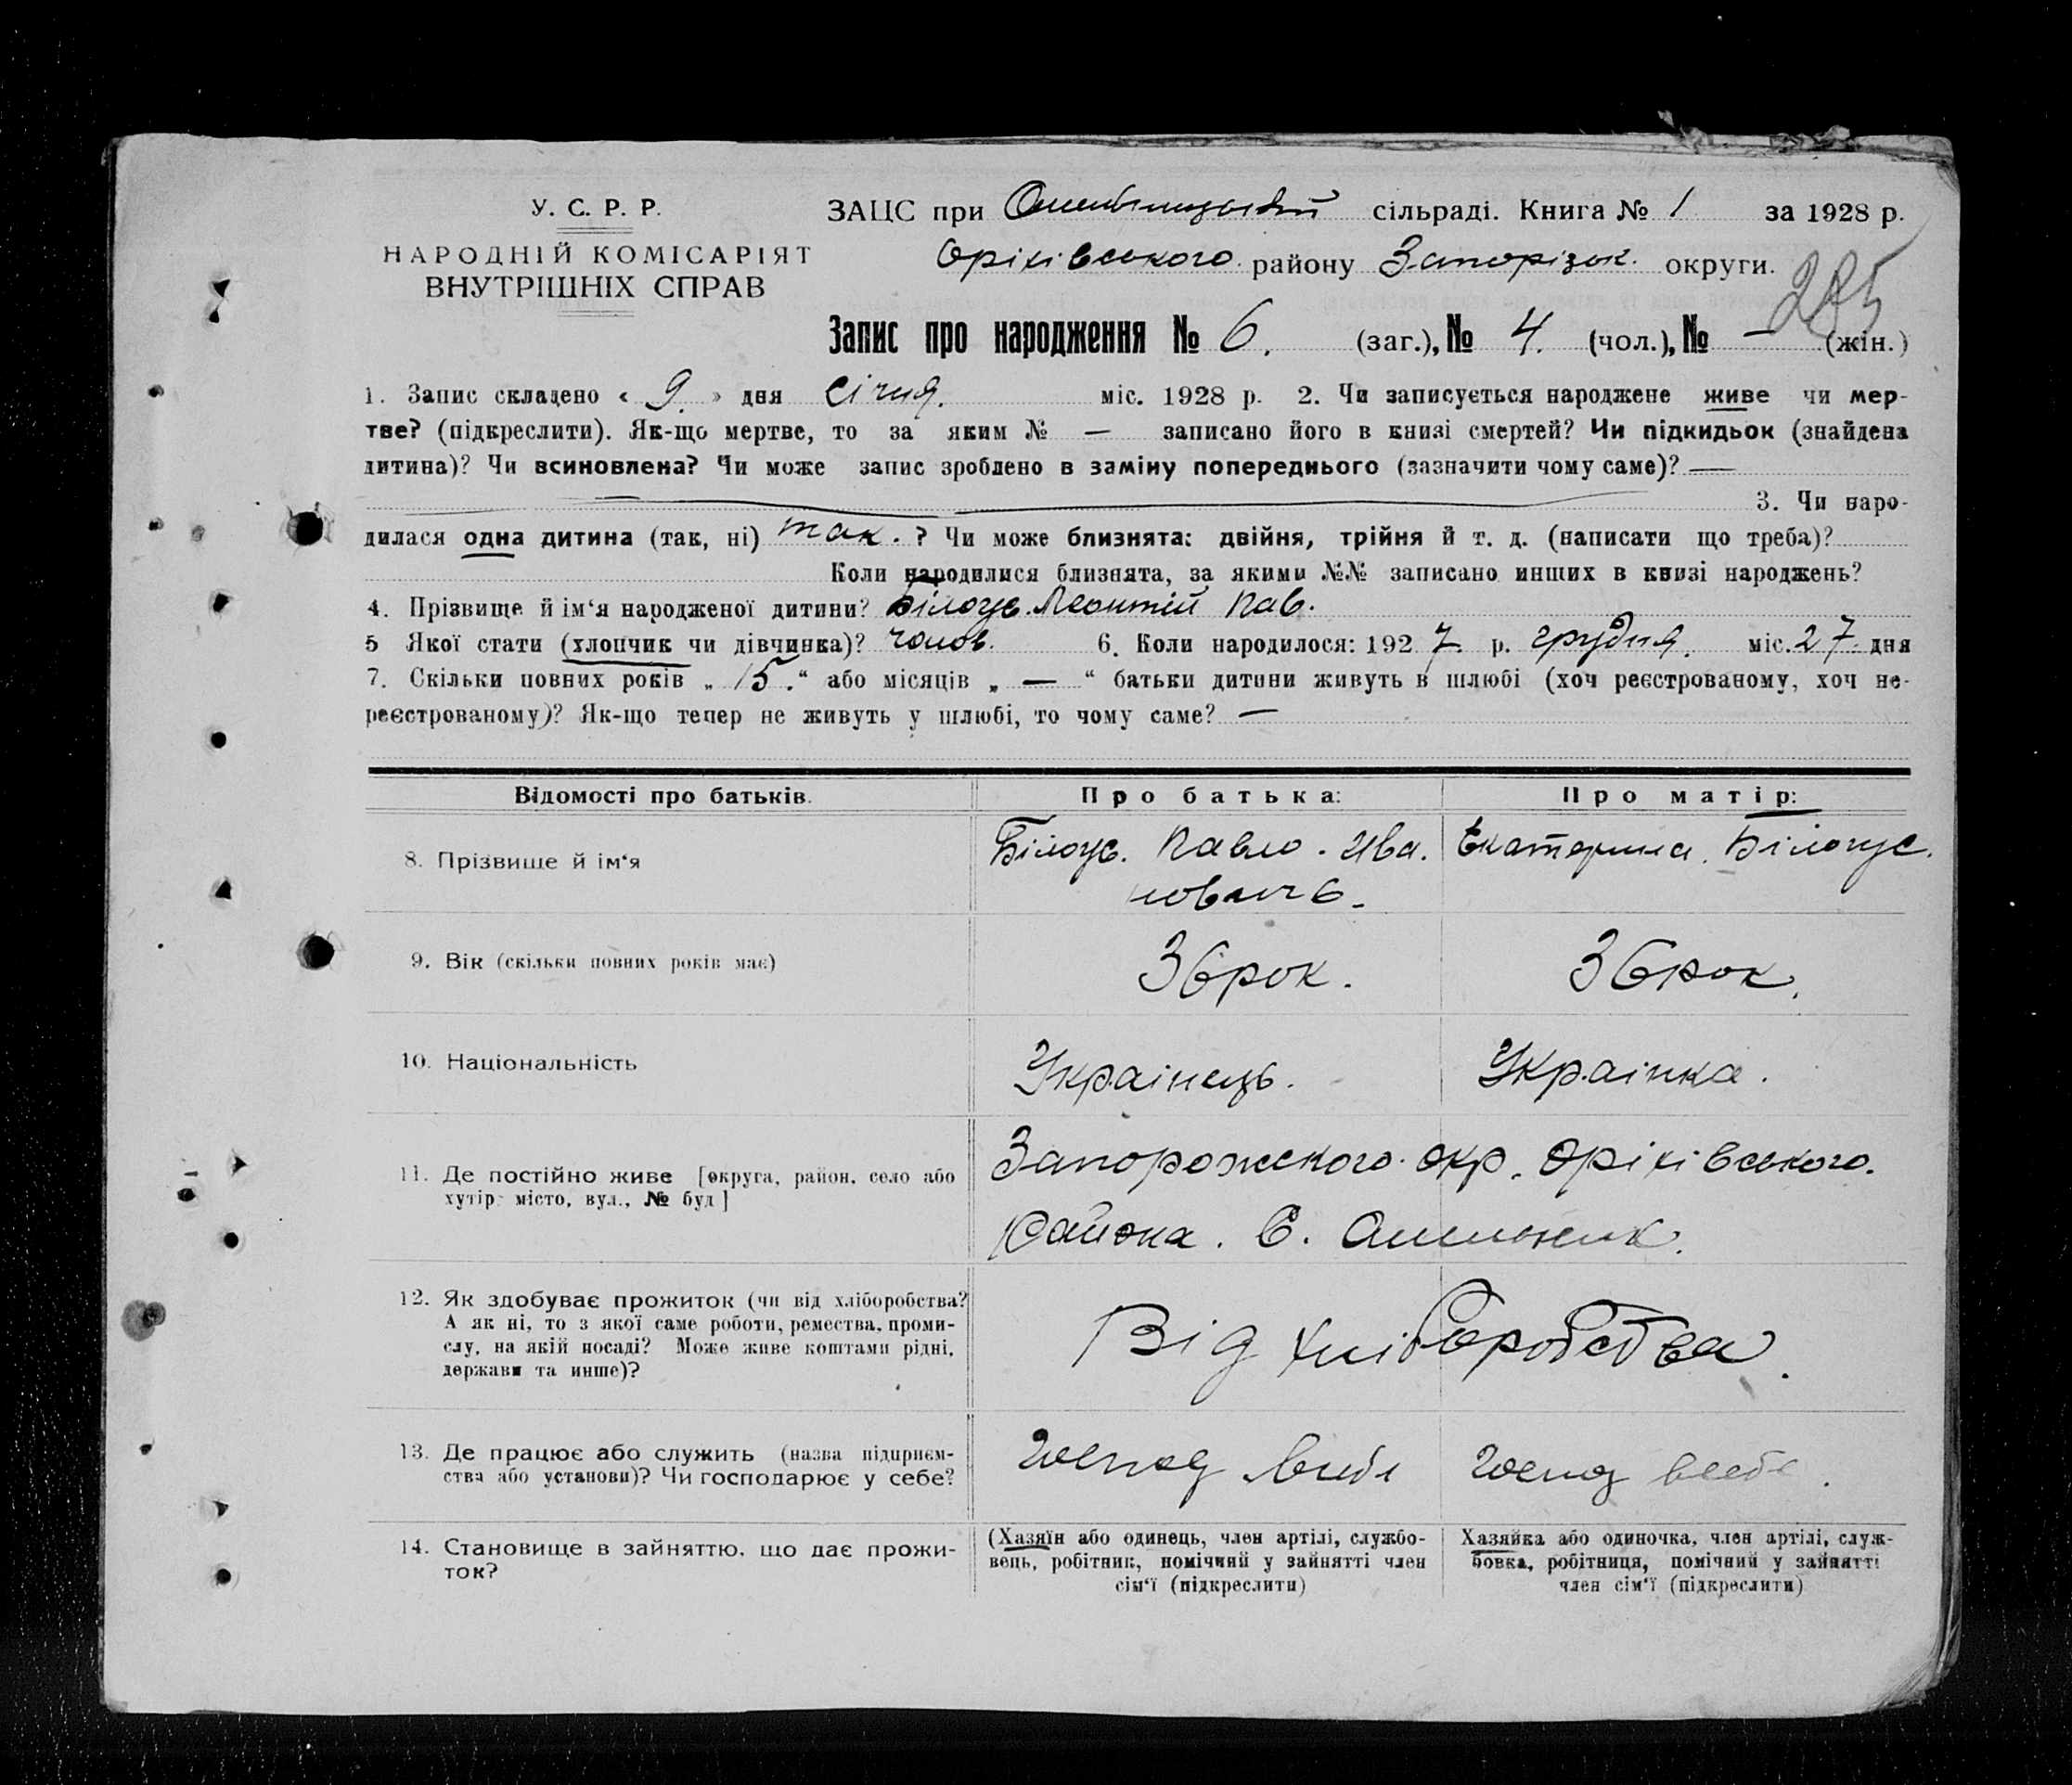 У. С. Р. Р.
НАРОДНІЙ КОМІСАРІЯТ
ВНУТРІШНІХ СПРАВ
ЗАЦС при Омельницький сільраді. Книга № 1 за 1928 р.
Оріхівського району Запорізьк. округи.
285
Запис про народження № 6. (заг.), № 4. (чол.), № — (жін.)
1. Запис складено « 9. » дня січня. міс. 1928 р. 2. Чи записується народжене живе чи мер-
тве? (підкреслити). Як-що мертве, то за яким № — записано його в книзі смертей? Чи підкидьок (знайдена
дитина)? Чи всиновлена? Чи може запис зроблено в заміну попереднього (зазначити чому саме)? —
3. Чи наро-
дилася одна дитина (так, ні) так. ? Чи може близнята: двійня, трійня й т. д. (написати що треба)?
Коли народилися близнята, за якими №№ записано инших в книзі народжень?
4. Прізвище й ім‘я народженої дитини? Білоус. Леонтій Пав.
5 Якої стати (хлопчик чи дівчинка)? чолов. 6. Коли народилося: 1927 р. грудня. міс. 27. дня
7. Скільки повних років „ 15. “ або місяців „ — “ батьки дитини живуть в шлюбі (хоч реєстрованому, хоч не-
реєстрованому)? Як-що тепер не живуть у шлюбі, то чому саме? —
Відомості про батьків. Про батька: Про матір:
8. Прізвище й ім‘я Білоус. Павло. Ива. Екатерина. Білоус.
новичь.
9. Вік (скільки повних років має) 36 рок. 36 рок.
10. Національність Українець. Українка.
11. Де постійно живе [округа, район, село або
хутір місто, вул., № буд]
Запорожского. окр. Оріхівського.
Района. С. Омельник.
12. Як здобуває прожиток (чи від хліборобства?
А як ні, то з якої саме роботи, ремества, проми-
слу, на якій посаді? Може живе коштами рідні,
держави та инше)?
Від хліборобства.
13. Де працює або служить (назва підприєм-
ства або установи)? Чи господарює у себе?
14. Становище в зайняттю, що дає прожи-
ток?
(Хазяїн або одинець, член артілі, службо-
вець, робітник, помічний у зайнятті член
сім‘ї (підкреслити)
Хазяйка або одиночка, член артілі, служ-
бовка, робітниця, помічний у зайнятті
член сім‘ї (підкреслити)